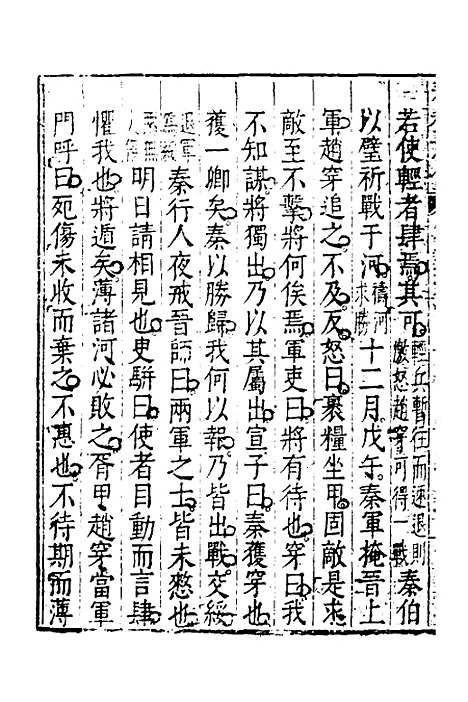 若使輕者肆焉其可輕兵暫往而速退則激怒趙穿可得一戰秦伯
以璧祈戰于河禱河求勝十二月戊午秦軍掩晉上
軍趙穿追之不及反怒曰裹糧坐甲固敵是求
敵至不擊將何俟焉軍吏曰將有待也穿曰我
不知謀將獨出乃以其屬出宣子曰秦獲穿也
獲一卿矣秦以勝歸我何以報乃皆出戰交綏
退軍秦行人夜戒晉師曰兩軍之士皆未憖也
明日請相見也㬰駢曰使者目動而言肆
懼我也將遁矣薄諸河必敗之胥甲趙穿當軍
門呼曰死傷未收而棄之不惠也不待期而薄